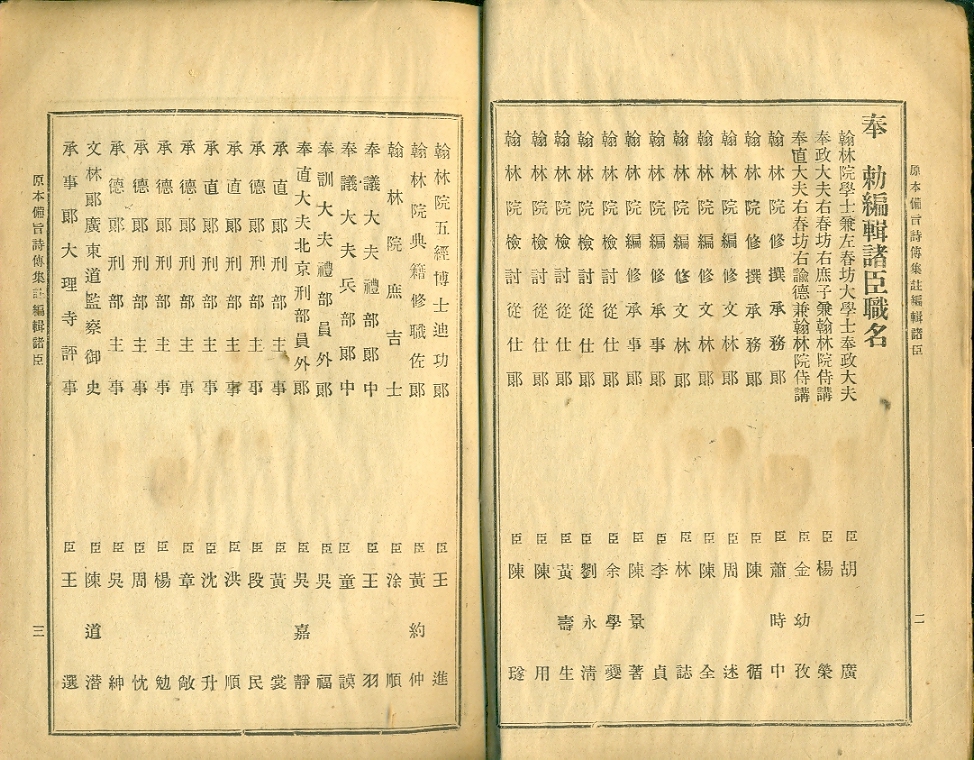 原本備旨詩傳集註編輯諸臣
二
奉 勅編輯諸臣職名
翰林院學士兼左春坊大學士奉政大夫 臣胡廣
奉政大夫右春坊右庶子兼翰林院侍講 臣楊榮
奉直大夫右春坊右諭德兼翰林院侍講 臣金幼孜
翰林院修撰承務郞 臣蕭時中
翰林院修撰承務郞 臣陳循
翰林院編修文林郞 臣周述
翰林院編修文林郞 臣陳全
翰林院編修文林郞 臣林誌
翰林院編修承事郞 臣李貞
翰林院編修承事郞 臣陳景著
翰林院檢討從仕郞 臣余學夔
翰林院檢討從仕郞 臣劉永淸
翰林院檢討從仕郞 臣黃壽生
翰林院檢討從仕郞 臣陳用
翰林院檢討從仕郞 臣陳璲
翰林院五經博士迪功郞 臣王進
翰林院典籍修職佐郞 臣黃約仲
翰林院庶吉士 臣涂順
奉議大夫禮部郞中 臣王羽
奉議大夫兵部郞中 臣童謨
奉訓大夫禮部員外郞 臣吳福
奉直大夫北京刑部員外郞 臣吳嘉靜
承直郞刑部主事 臣黃裳
承德郞刑部主事 臣段民
承直郞刑部主事 臣洪順
承直郞刑部主事 臣沈升
承德郞刑部主事 臣章敞
承德郞刑部主事 臣楊勉
承德郞刑部主事 臣周忱
承德郞刑部主事 臣吳紳
文林郞廣東道監察御史 臣陳道潜
承事郞大理寺評事 臣王選
原本備旨詩傳集註編輯諸臣
三